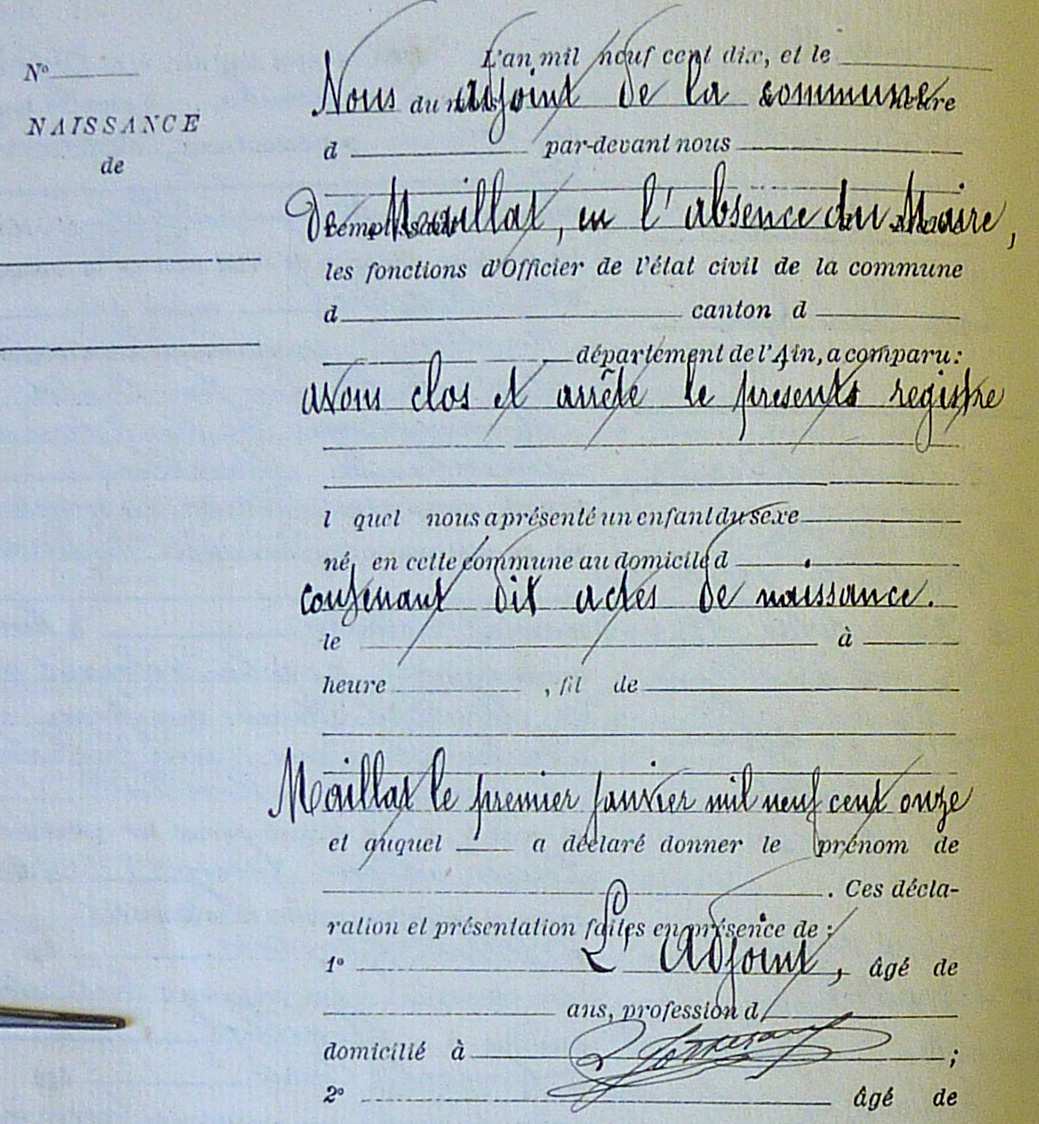 N°
NAISSANCE
de
L'an mil neuf cent dix, et le
Nous adjoint de la commune
d par-devant nous
De Maillat, en l'absence du Maire,
les fonctions d'Officier de l'état civil de la commune
d canton d
département de l'Ain, a comparu :
avons clos et arrêté le présents registre
l quel nous a présenté un enfant du sexe
né, en cette commune au domicile d
contenant dix actes de naissance.
le à
heure , fil de
Maillat le premier janvier mil neuf cent onze
et auquel a déclaré donner le prénom de
. Ces décla-
ration et présentation faites en présence de :
1° L'Adjoint, âgé de
ans, profession d
domicilié à ;
2° âgé de